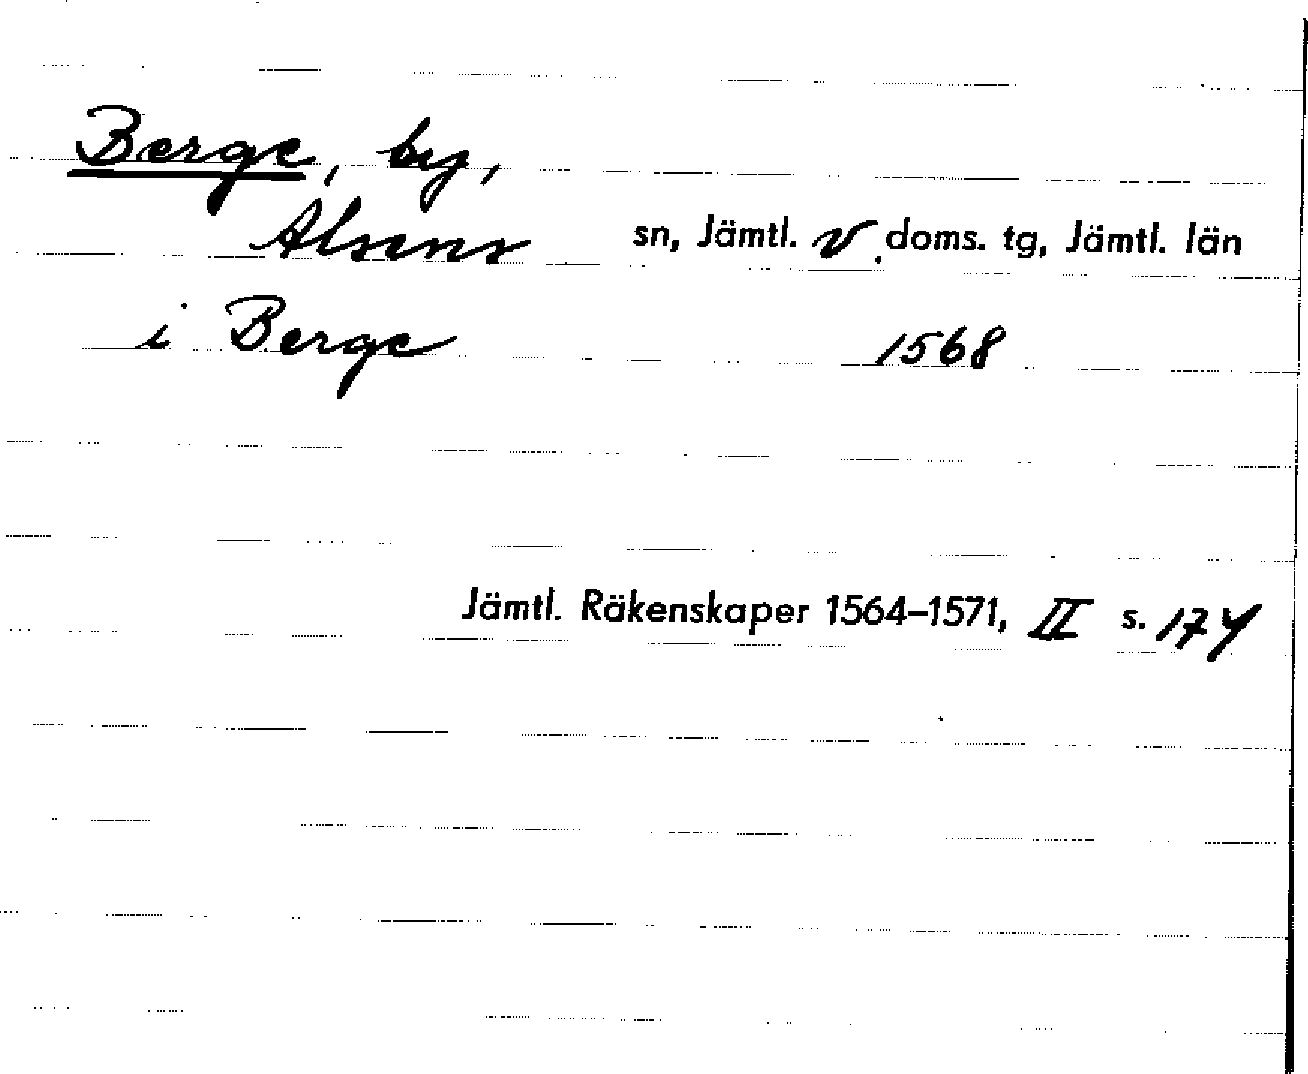 Berge, by,
Alsens sn, Jämtl. v. doms. tg, Jämtl. län
i Berge 1568
Jämtl. Räkenskaper 1564–1571, II s. 174